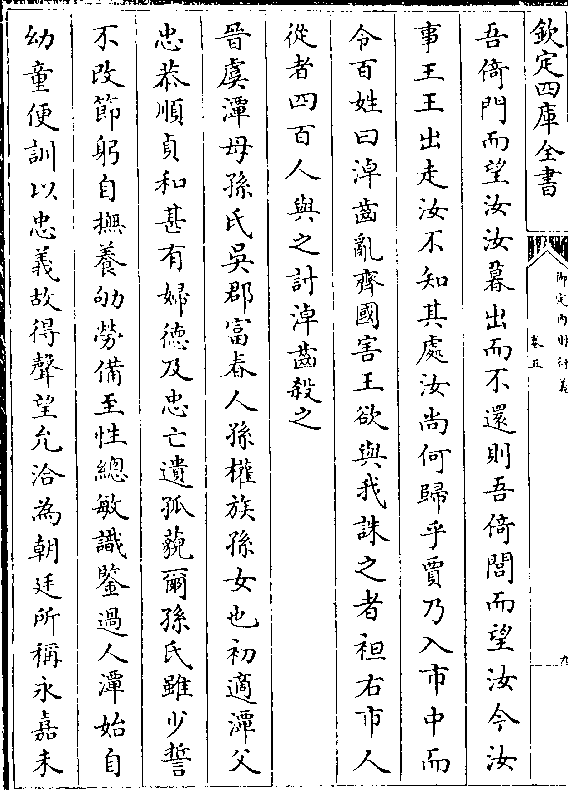 欽定四庫全書
御定內則衍義
卷五
九
吾倚門而望汝汝暮出而不還則吾倚閭而望汝今汝
事王王出走汝不知其處汝尚何歸乎賈乃入市中而
令百姓曰淖齒亂齊國害王欲與我誅之者袒右市人
從者四百人與之計淖齒殺之
晉虞潭母孫氏吳郡富春人孫權族孫女也初適潭父
忠恭順貞和甚有婦德及忠亡遺孤藐爾孫氏雖少誓
不改節躬自撫養劬勞備至性總敏識鑒過人潭始自
幼童便訓以忠義故得聲望允洽為朝廷所稱永嘉末